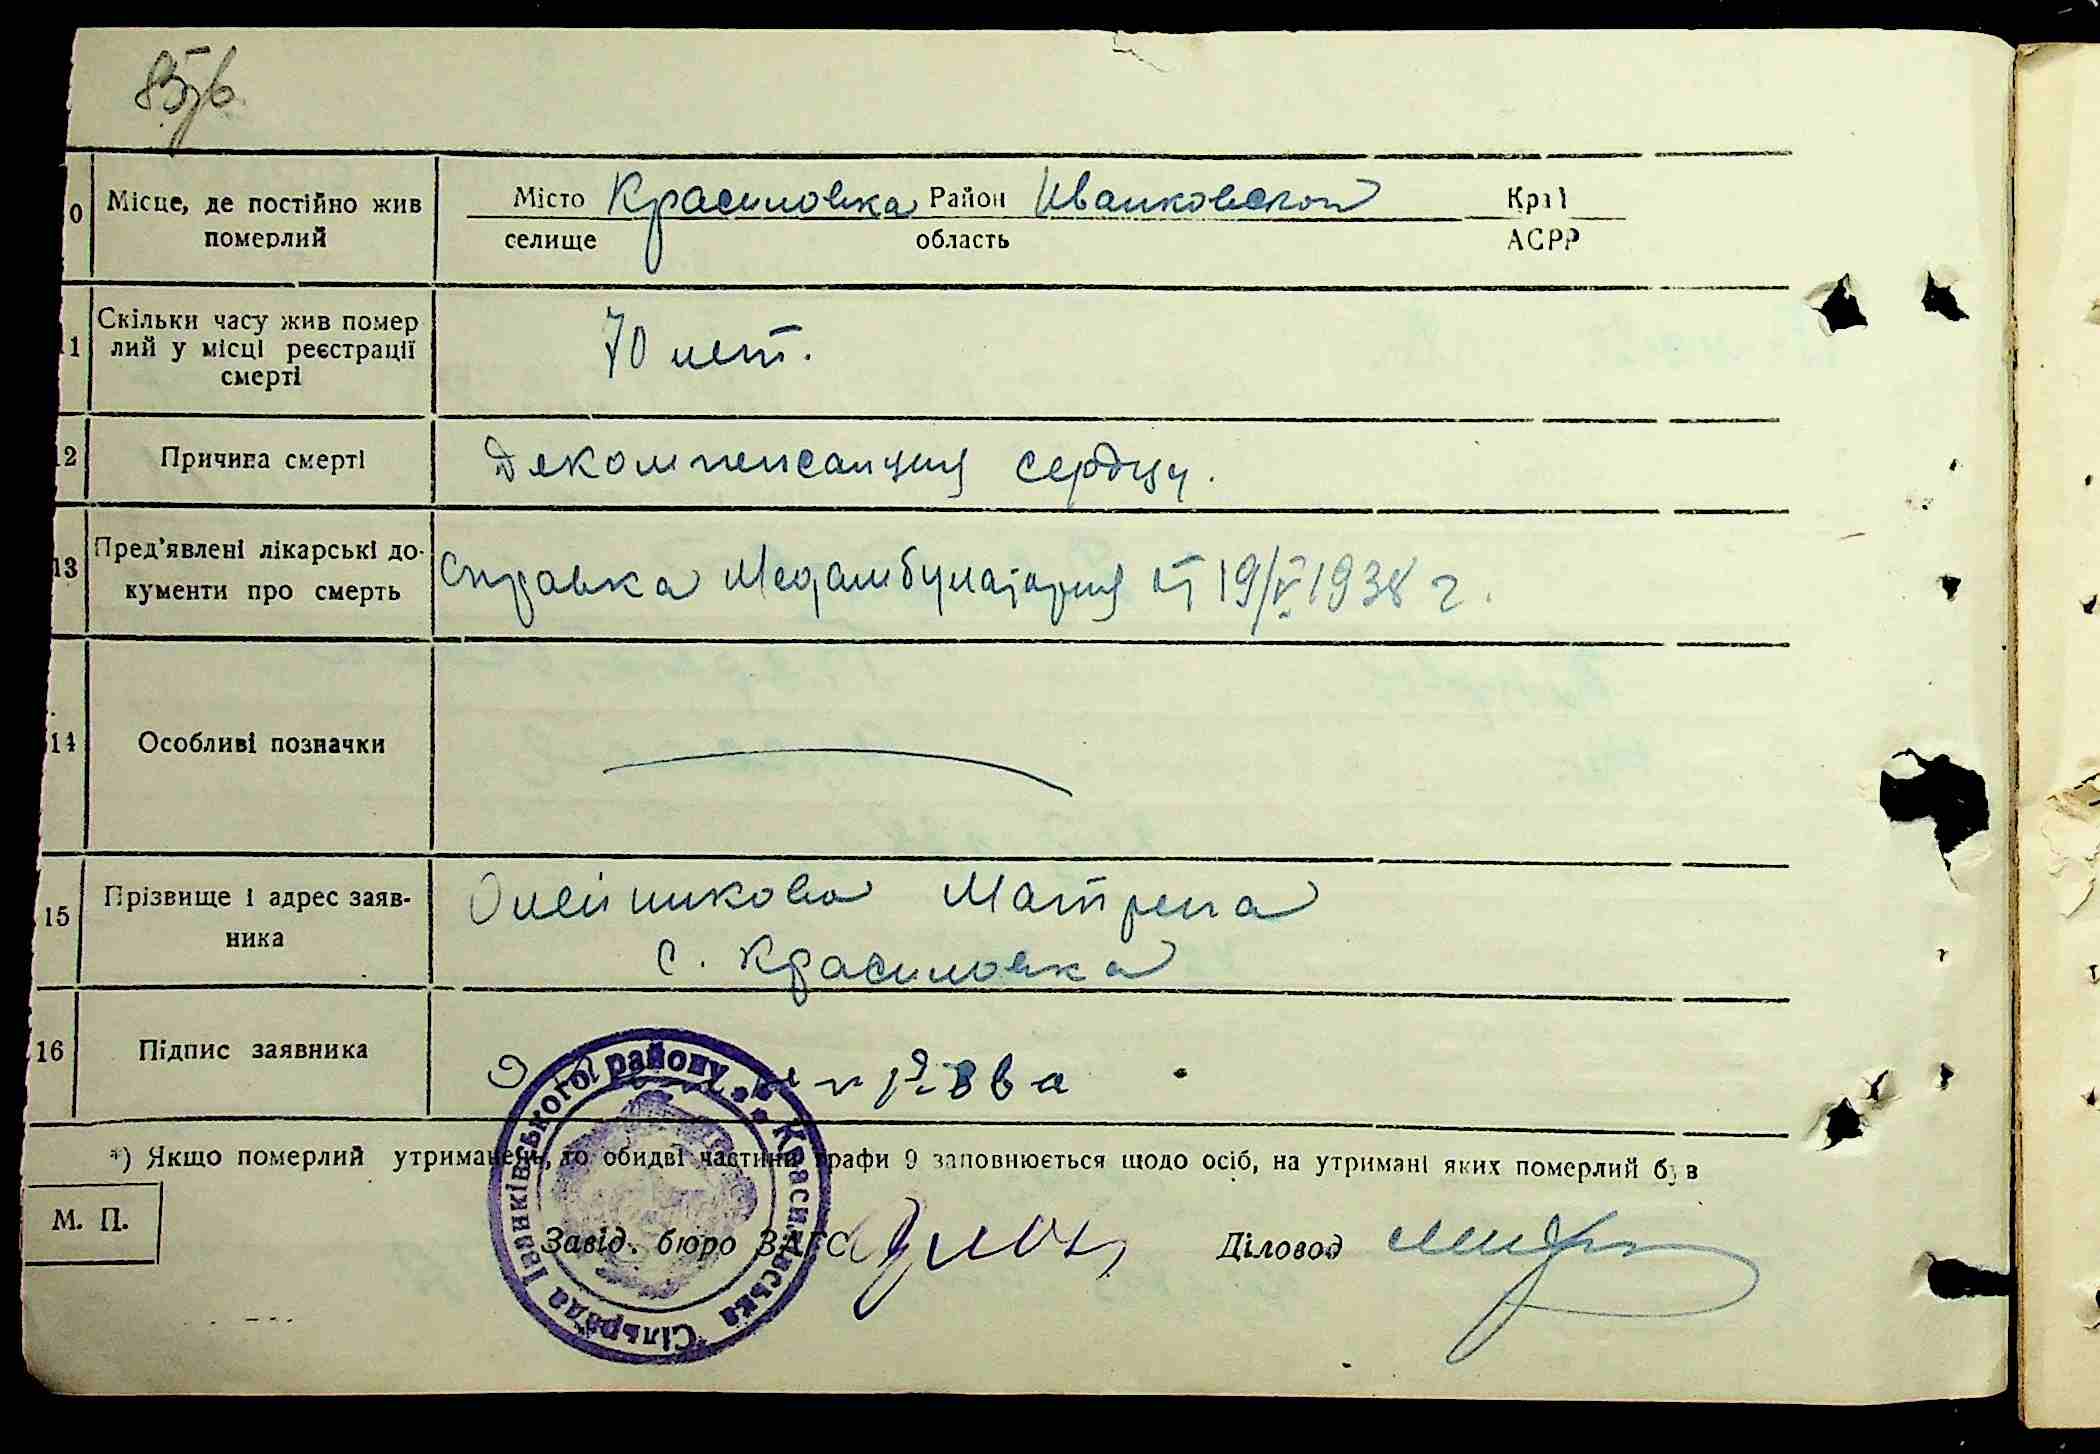 0 Місце, де постійно жив Місто Красиловка Район Иванковский Край
померлий селище область АСРР
11 Скільки часу жив помер
лий у місці реєстрації 70 лет.
смерті
12 Причина смерті Декомпенсация сердця.
13 Пред'явлені лікарські до-
кументи про смерть Справка Медамбулатория от 19/V 1938 г.
14 Особливі позначки
15 Прізвище і адрес заяв- Олейникова Матрена
ника с. Красиловка
16 Підпис заявника
*) Якщо померлий утриманець, то обидві частини графи 9 заповнюється щодо осіб, на утримані яких померлий був
М. П.
Завід. бюро ЗАГС Діловод
Красилівська Сільрада Іванківського району